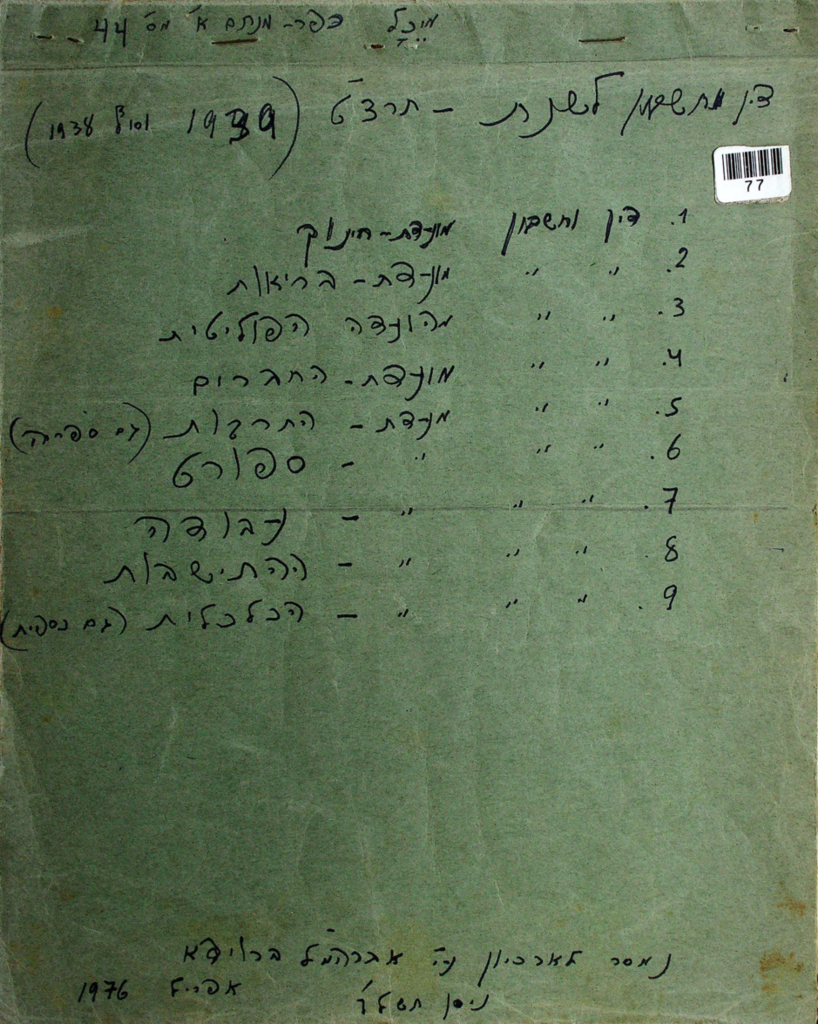 מיכל כפר-מנחם א' מס' 44
דין וחשבון לשנת - תרצ"ט (1939 וסוף 1938)
77
1. דין וחשבון מועדת-חינוך
2. " " מועדת-בריאות
3. " " מהועדה הפוליטית
4. " " מועדת-החברים
5. " " מועדת-התרבות (גם ספריה)
6. " " " - ספורט
7. " " " - עבודה
8. " " " - ההתישבות
9. " " " - הכלכלית (גם כספית)
נמסר לארכיון ע"י
ניסן תשל"ו אפריל 1976